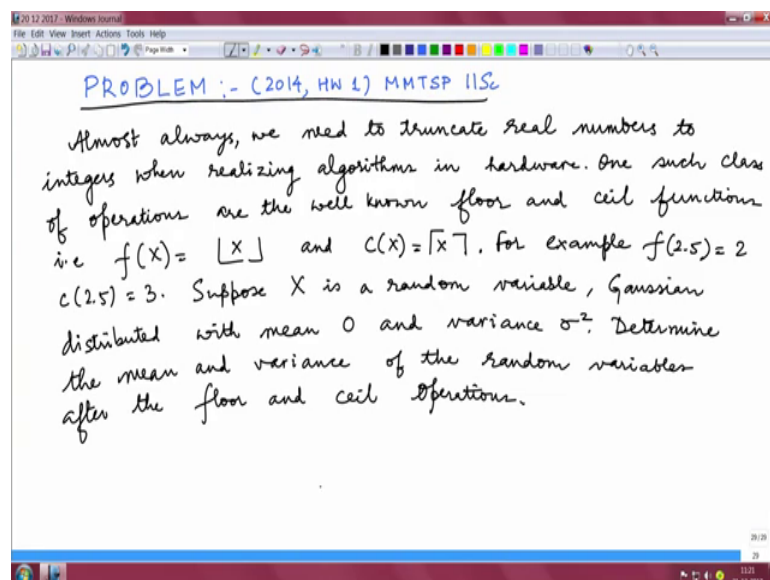 20 12 2017 - Windows Journal
File Edit View Insert Actions Tools Help
Page Width
PROBLEM :- (2014, HW 1) MMTSP IISc
Almost always, we need to truncate real numbers to
integers when realizing algorithms in hardware. One such class
of operations are the well known floor and ceil functions
i.e f(x) = ⌊x⌋ and c(x) = ⌈x⌉. For example f(2.5) = 2
c(2.5) = 3. Suppose X is a random variable, Gaussian
distributed with mean 0 and variance σ². Determine
the mean and variance of the random variables
after the floor and ceil operations.
29/29
29
11:21